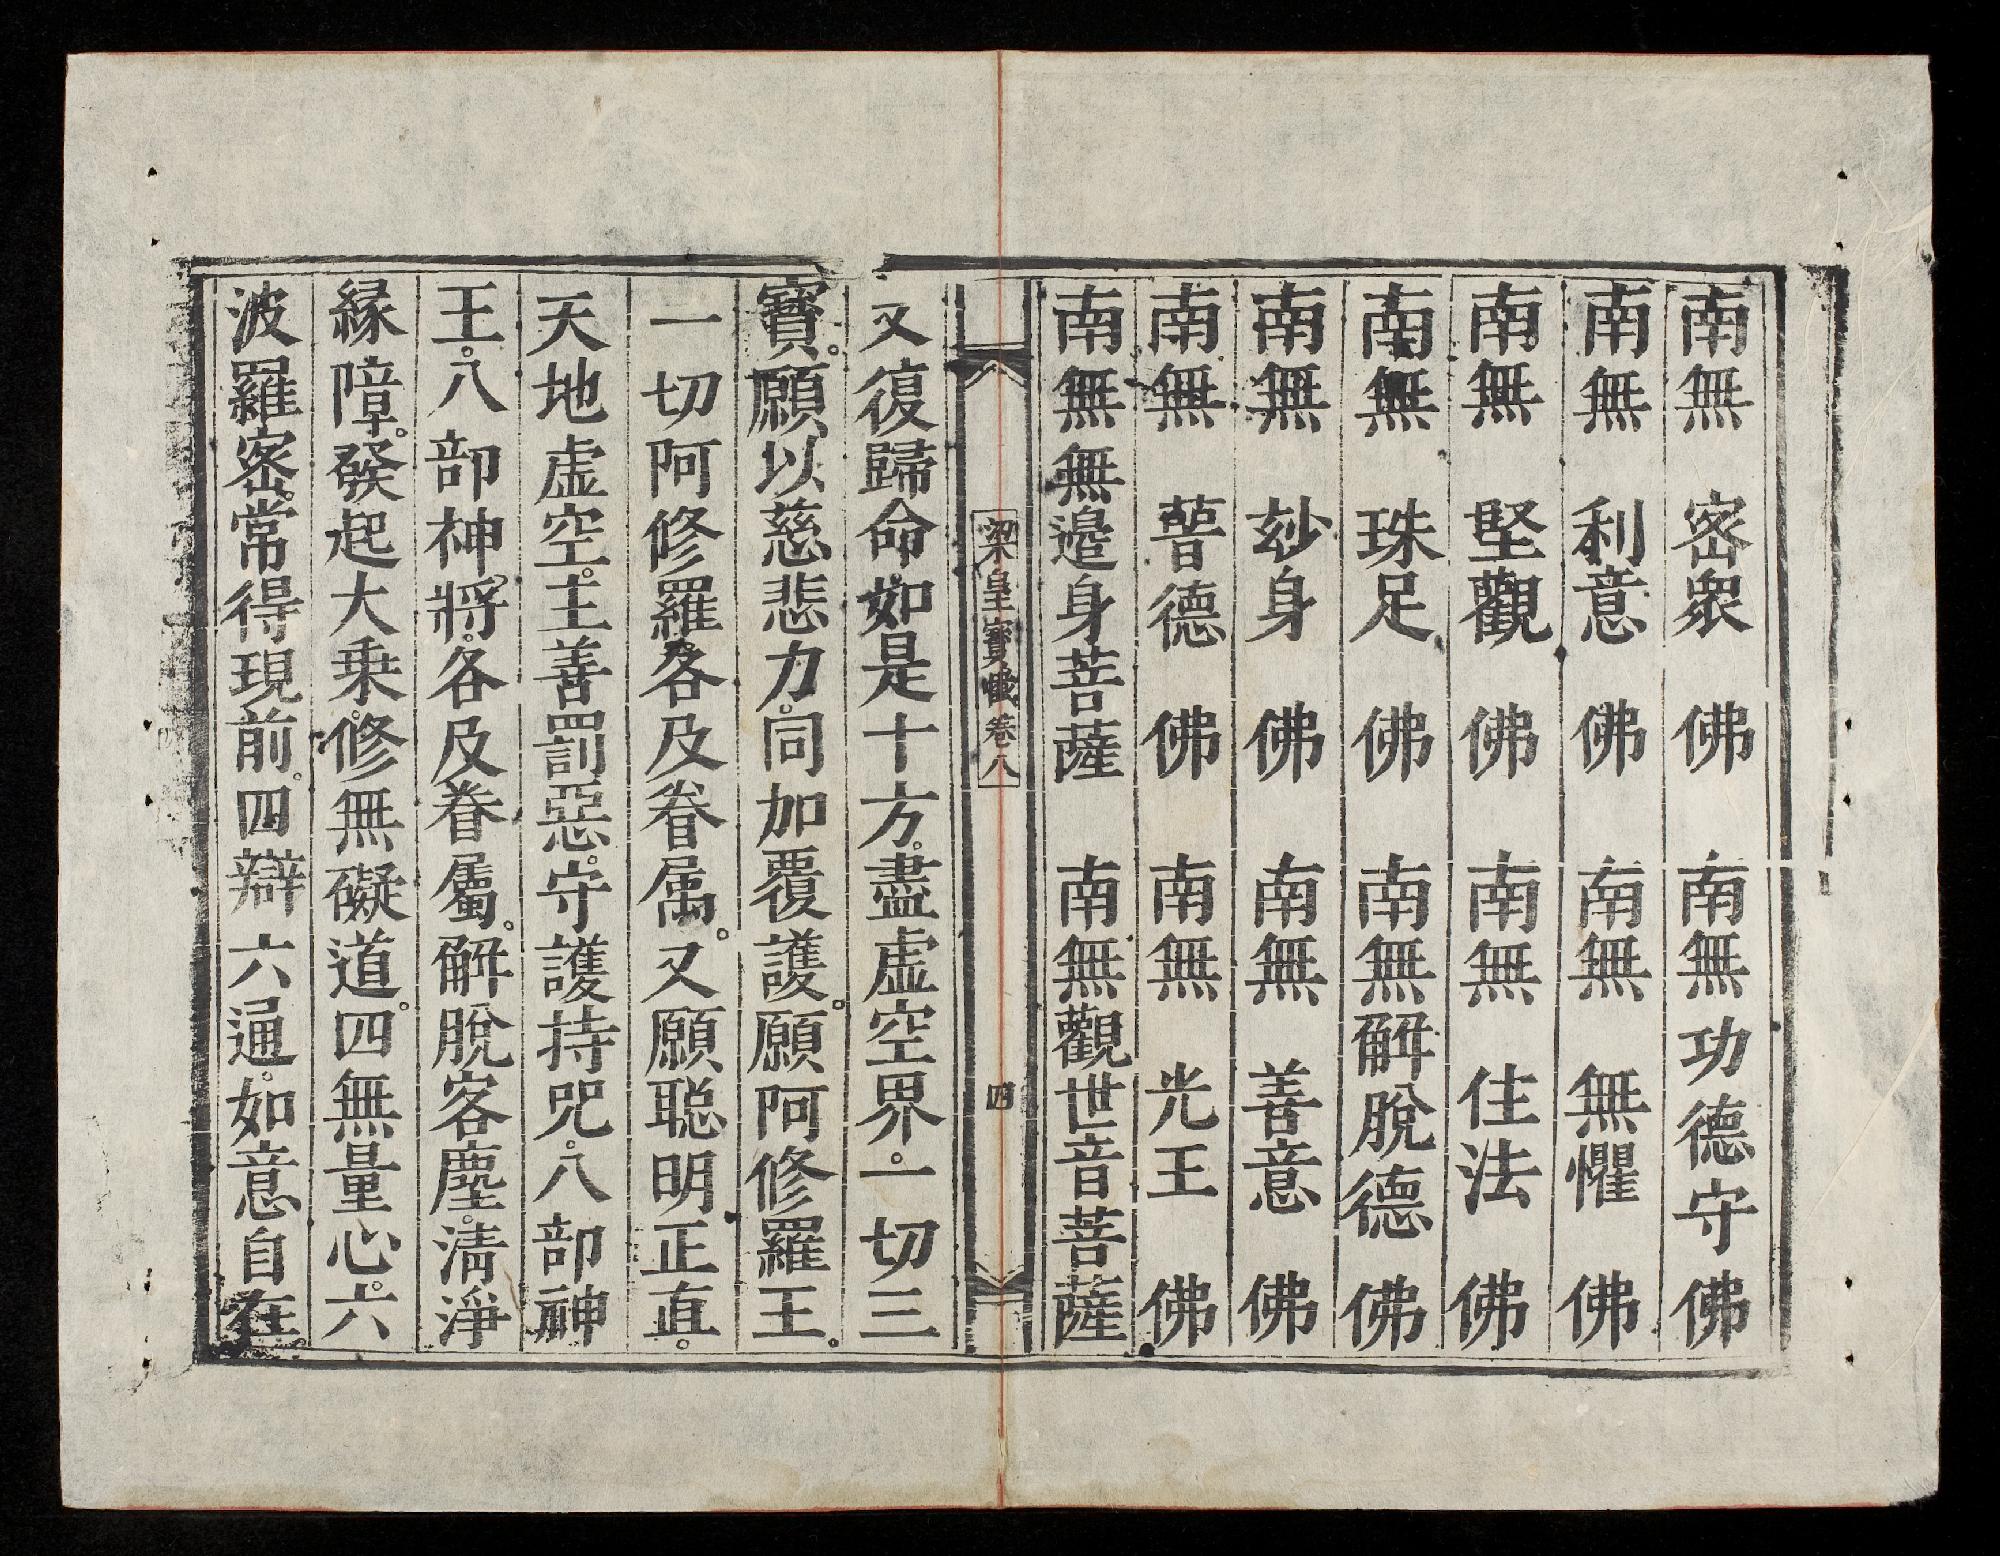 南無密衆佛 南無功德守佛
南無利意佛 南無無懼佛
南無堅觀佛 南無住法佛
南無珠足佛 南無解脫德佛
南無玅身佛 南無善意佛
南無普德佛 南無光王佛
南無無邊身菩薩 南無觀世音菩薩
梁皇寶懺卷八 四
又復歸命如是十方。盡虛空界。一切三
寶。願以慈悲力。同加覆護。願阿修羅王。
一切阿修羅。各及眷属。又願聰明正直。
天地虛空。主善罰惡。守護持咒。八部神
王。八部神將。各及眷屬。解脫客塵。清淨
緣障。發起大乘。修無礙道。四無量心。六
波羅密。常得現前。四辯六通。如意自在。